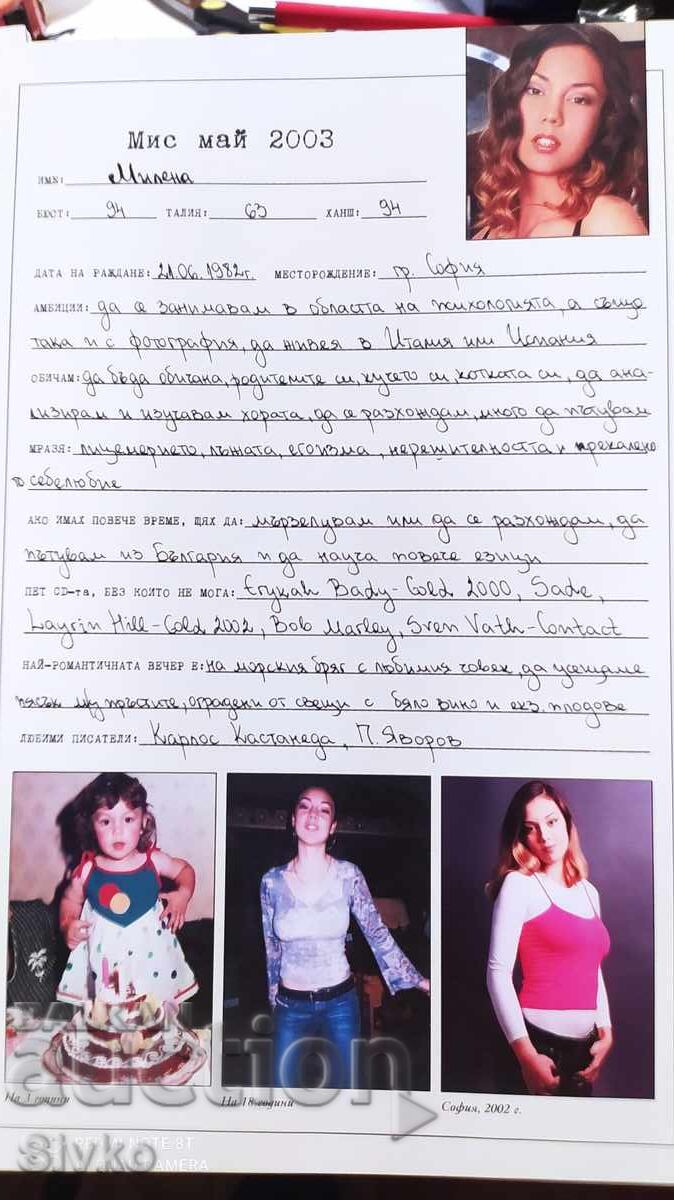 Мис май 2003
ИМЕ: Милена
БЮСТ: 94 ТАЛИЯ: 63 ХАНШ: 94
ДАТА НА РАЖДАНЕ: 21.06.1982г. МЕСТОРОЖДЕНИЕ: гр. София
АМБИЦИИ: да се занимавам в областта на психологията, а също
така и с фотография, да живея в Италия или Испания
ОБИЧАМ: да бъда обичана, родителите си, кучето си, котката си, да ана-
лизирам и изучавам хората, да се разхождам, много да пътувам
МРАЗЯ: лицемерието, лъжата, егоизма, нерешителността и прекалено
то себелюбие
АКО ИМАХ ПОВЕЧЕ ВРЕМЕ, ЩЯХ ДА: мързелувам или да се разхождам, да
пътувам из България и да науча повече езици
ПЕТ CD-та, БЕЗ КОИТО НЕ МОГА: Erykah Bady-Gold 2000, Sade,
Layrin Hill-Gold 2002, Bob Marley, Sven Vath-Contact
НАЙ-РОМАНТИЧНАТА ВЕЧЕР Е: На морския бряг с любимия човек, да усещаме
пясък м/у пръстите, оградени от свещи с бяло вино и екз. плодове
ЛЮБИМИ ПИСАТЕЛИ: Карлос Кастанеда, П. Яворов
На 3 години
На 18 години
София, 2002 г.
BALKAN
auction
REDMI NOTE 8T
CAMERA
Sivko